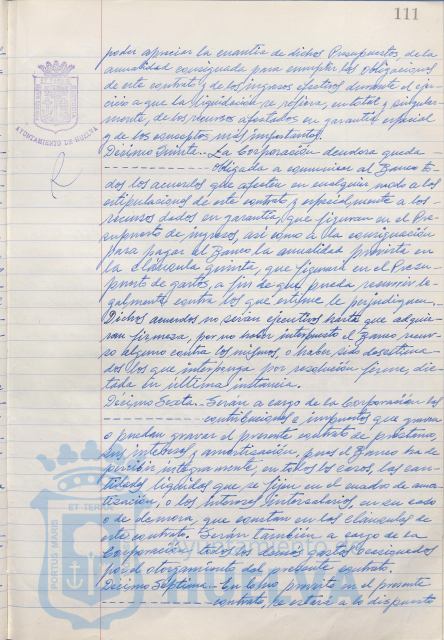 111
poder apreciar la cuantía de dichos Presupuestos, de la
anualidad consignada para cumplir las obligaciones
de este contrato y de los ingresos efectivos durante el ejer-
cicio a que la liquidación se refiera, en total y singular-
mente, de los recursos afectados en garantía especial
y de los conceptos más importantes.
Décimo Quinta.- La Corporación deudora queda
obligada a comunicar al Banco to-
dos los acuerdos que afecten en cualquier modo a las
estipulaciones de este contrato y especialmente a los
recursos dados en garantía, que figuran en el Pre-
supuesto de ingresos, así como a la consignación
para pagar al Banco la anualidad prevista en
la cláusula quinta, que figurará en el Presu-
puesto de gastos, a fin de que pueda recurrir le-
galmente contra los que estime le perjudiquen.
Dichos acuerdos no serán ejecutivos hasta que adquie-
ran firmeza, por no haber interpuesto el Banco recur-
so alguno contra los mismos, o haber sido desestima-
dos los que interponga por resolución firme, dic-
tada en última instancia.
Décimo Sexta.- Serán a cargo de la Corporación las
contribuciones e impuestos que gravan
o puedan gravar el presente contrato de préstamo,
sus intereses y amortización, pues el Banco ha de
percibir íntegramente, en todos los casos, las can-
tidades líquidas que se fijen en el cuadro de amor-
tización, o los intereses intersalarios, en su caso
o de demora, que constan en las cláusulas de
este contrato. Serán también a cargo de la
Corporación todos los demás gastos ocasionados
por el otorgamiento del presente contrato.
Décimo Séptima.- En lo no previsto en el presente
contrato, se estará a lo dispuesto
AYUNTAMIENTO DE HUELVA
PORTUS MARIS ET TERRAE
Ayuntamiento de
HUELVA